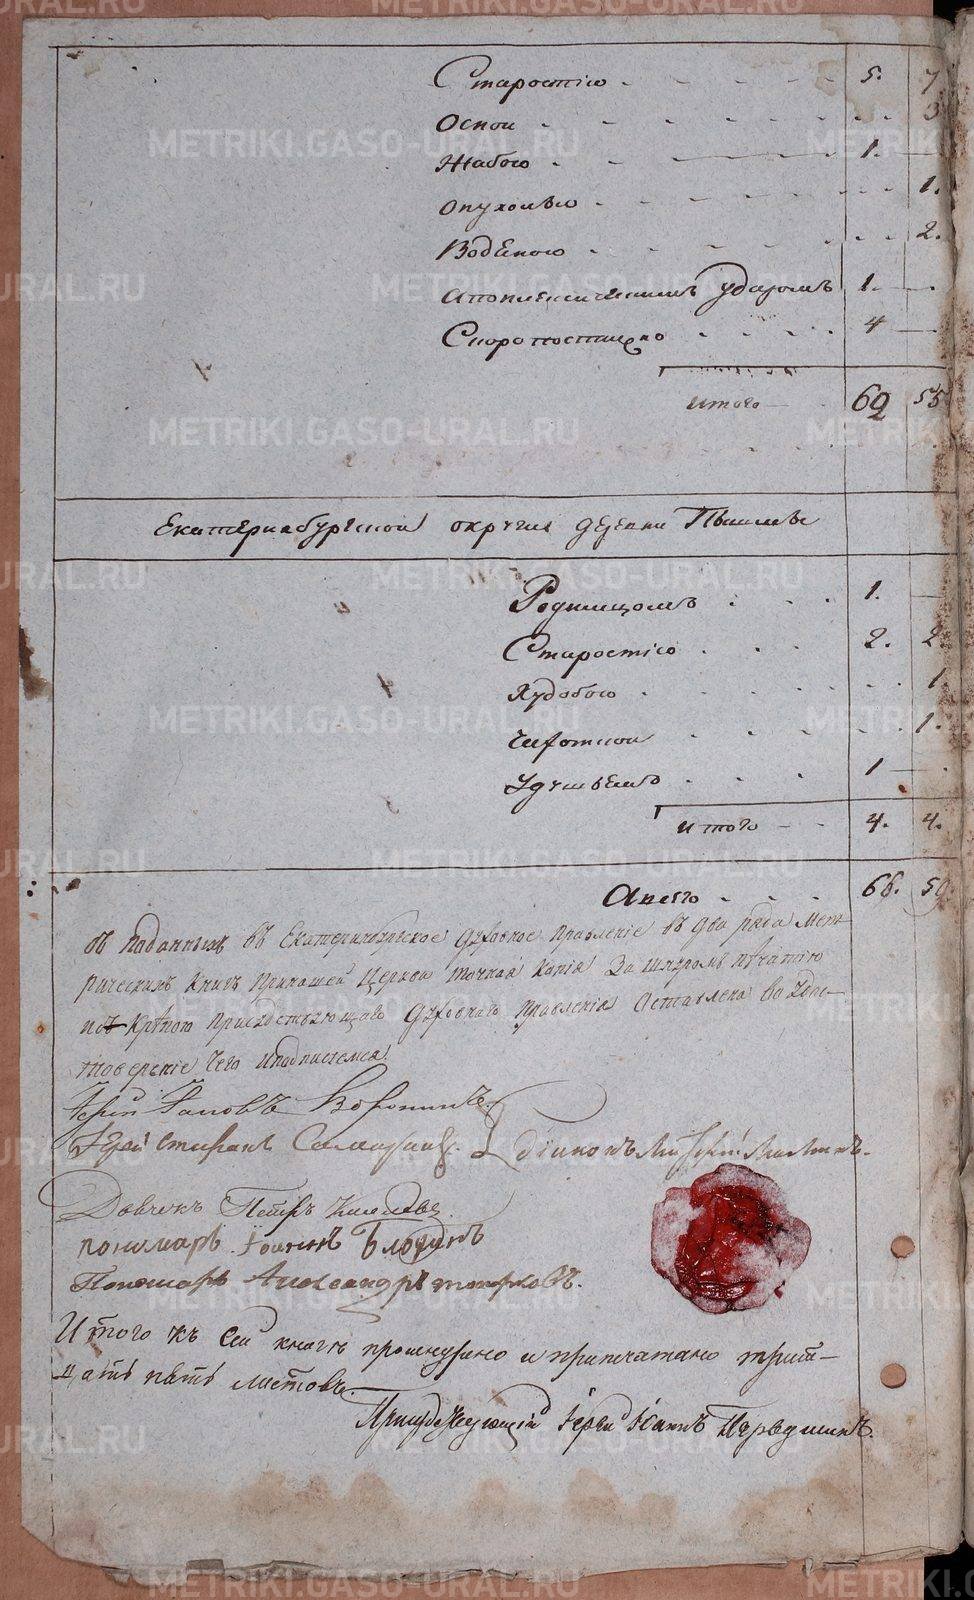 Старостію 5. 7
Оспой 3
Жабою 1.
Опухолью 1.
Водѣною 2.
Апоплексическимъ ударомъ 1.
Скоропостижно 4
итого 62 55
Екатеринбургской округи деревни Пышмы
Родимцомъ 1.
Старостію 2. 2.
Худобою 1
Чихоткой 1.
Удушьемъ 1
итого 4. 4.
А всего 66. 59.
съ поданныхъ въ Екатеринбургское Духовное Правленіе въ два ряда Мет
рическихъ книгъ При нашей Церкви точная копія За шнуромъ печатью
и скрѣпою присудствующаго Духовнаго Правленія Оставлена во удос-
товереніе чего и подписуемся
Іерей Іаковъ Воронинъ
Іерей Стефанъ Діаконъ
Дьячекъ Петръ Киселевъ.
пономарь Іоаннъ Блудинъ
Пономарь Александръ Топорковъ.
Итого къ сей книгѣ прошнурено и припечатано трит-
цать пять листовъ.
Присудствующій Іерей Іоаннъ
METRIKI.GASO-URAL.RU